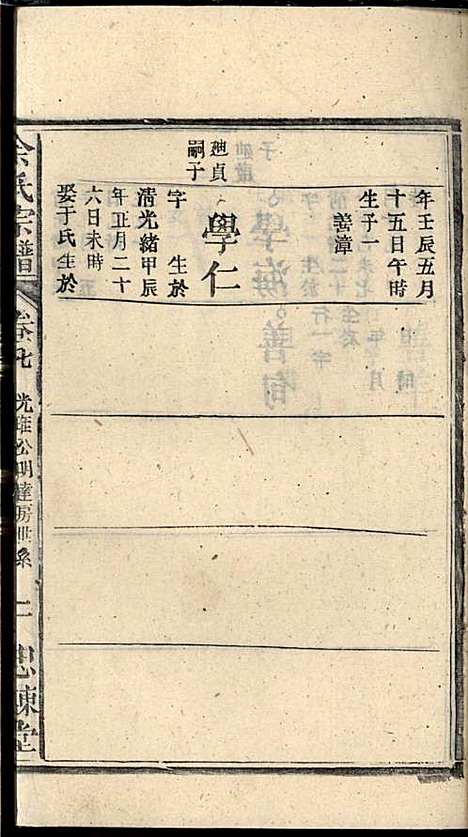 年壬辰五月
十五日午時
生子一
善漳
迪貞
嗣子
學仁
字 生於
清光緒甲辰
年正月二十
六日未時
娶于氏生於
余氏宗譜
卷七
光琟公明達房世系
二
忠諫堂